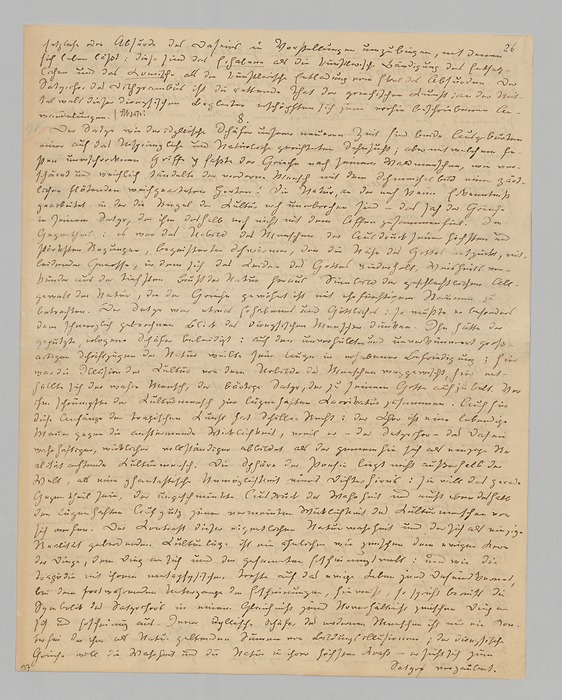 setzliche oder Absurde des Daseins in Vorstellungen umzubiegen, mit denen 26
sich leben lässt: diese sind das Erhabene als die künstlerische Bändigung des Entsetz-
lichen und das Komische als die künstlerische Entladung vom Ekel des Absurden. Der
Satyrchor des Dithyrambus ist die rettende That der griechischen Kunst; an der Mit-
telwelt dieser dionysischen Begleiter erschöpften sich jene vorhin beschriebenen An-
wandlungen.
8.
Der Satyr wie der idyllische Schäfer unserer neueren Zeit sind beide Ausgeburten
einer auf das Ursprüngliche und Natürliche gerichteten Sehnsucht; aber mit welchem fe-
sten unerschrocknen Griffe fasste der Grieche nach seinem Waldmenschen, wie ver-
schämt und weichlich tändelte der moderne Mensch mit dem Schmeichelbild eines zärt-
lichen flötenden weichgearteten Hirten! Die Natur, an der noch keine Erkenntniss
gearbeitet, in der die Riegel der Kultur noch unerbrochen sind – das sah der Grieche
in seinem Satyr, der ihm deshalb noch nicht mit dem Affen zusammenfiel. Im
Gegentheil: es war das Urbild des Menschen, der Ausdruck seiner höchsten und
stärksten Regungen, begeisterter Schwärmer, den die Nähe des Gottes entzückt, mit-
leidender Genosse, in dem sich das Leiden des Gottes wiederholt, Weisheitsver-
künder aus der tiefsten Brust der Natur heraus, Sinnbild der geschlechtlichen All-
gewalt der Natur, die der Grieche gewöhnt ist mit ehrfürchtigem Staunen zu
betrachten. Der Satyr war etwas Erhabenes und Göttliches: so musste er besonders
dem schmerzlich gebrochnen Blick des dionysischen Menschen dünken. Ihn hätte der
geputzte, erlogene Schäfer beleidigt: auf den unverhüllten und unverkümmert gross-
artigen Schriftzügen der Natur weilte sein Auge in erhabener Befriedigung; hier
war die Illusion der Kultur von dem Urbilde des Menschen weggewischt, hier ent-
hüllte sich der wahre Mensch, der bärtige Satyr, der zu seinem Gotte aufjubelt. Vor
ihm schrumpfte der Kulturmensch zur lügenhaften Karrikatur zusammen. Auch für
diese Anfänge der tragischen Kunst hat Schiller Recht: der Chor ist eine lebendige
Mauer gegen die anstürmende Wirklichkeit, weil er – der Satyrchor – das Dasein
wahrhaftiger, wirklicher, vollständiger abbildet als der gemeinhin sich als einzige Re-
alität achtende Kulturmensch. Die Sphäre der Poesie liegt nicht ausserhalb der
Welt, als eine phantastische Unmöglichkeit eines Dichterhirns: sie will das gerade
Gegentheil sein, der ungeschminkte Ausdruck der Wahrheit und muss eben deshalb
den lügenhaften Aufputz jener vermeinten Wirklichkeit des Kulturmenschen von
sich werfen. Der Kontrast dieser eigentlichen Naturwahrheit und der sich als einzige
Realität gebärdenden Kulturlüge ist ein ähnlicher wie zwischen dem ewigen Kern
der Dinge, dem Ding an sich und der gesammten Erscheinungswelt: und wie die
Tragödie mit ihrem metaphysischen Troste auf das ewige Leben jenes Daseinskernes,
bei dem fortwährenden Untergange der Erscheinungen, hinweist, so spricht bereits die
Symbolik des Satyrchors in einem Gleichniss jenes Urverhältniss zwischen Ding an
sich und Erscheinung aus. Jener idyllische Schäfer des modernen Menschen ist nur ein Kon-
terfei der ihm als Natur geltenden Summe von Bildungsillusionen; der dionysische
Grieche will die Wahrheit und die Natur in ihrer höchsten Kraft – er sieht sich zum
Satyr verzaubert.